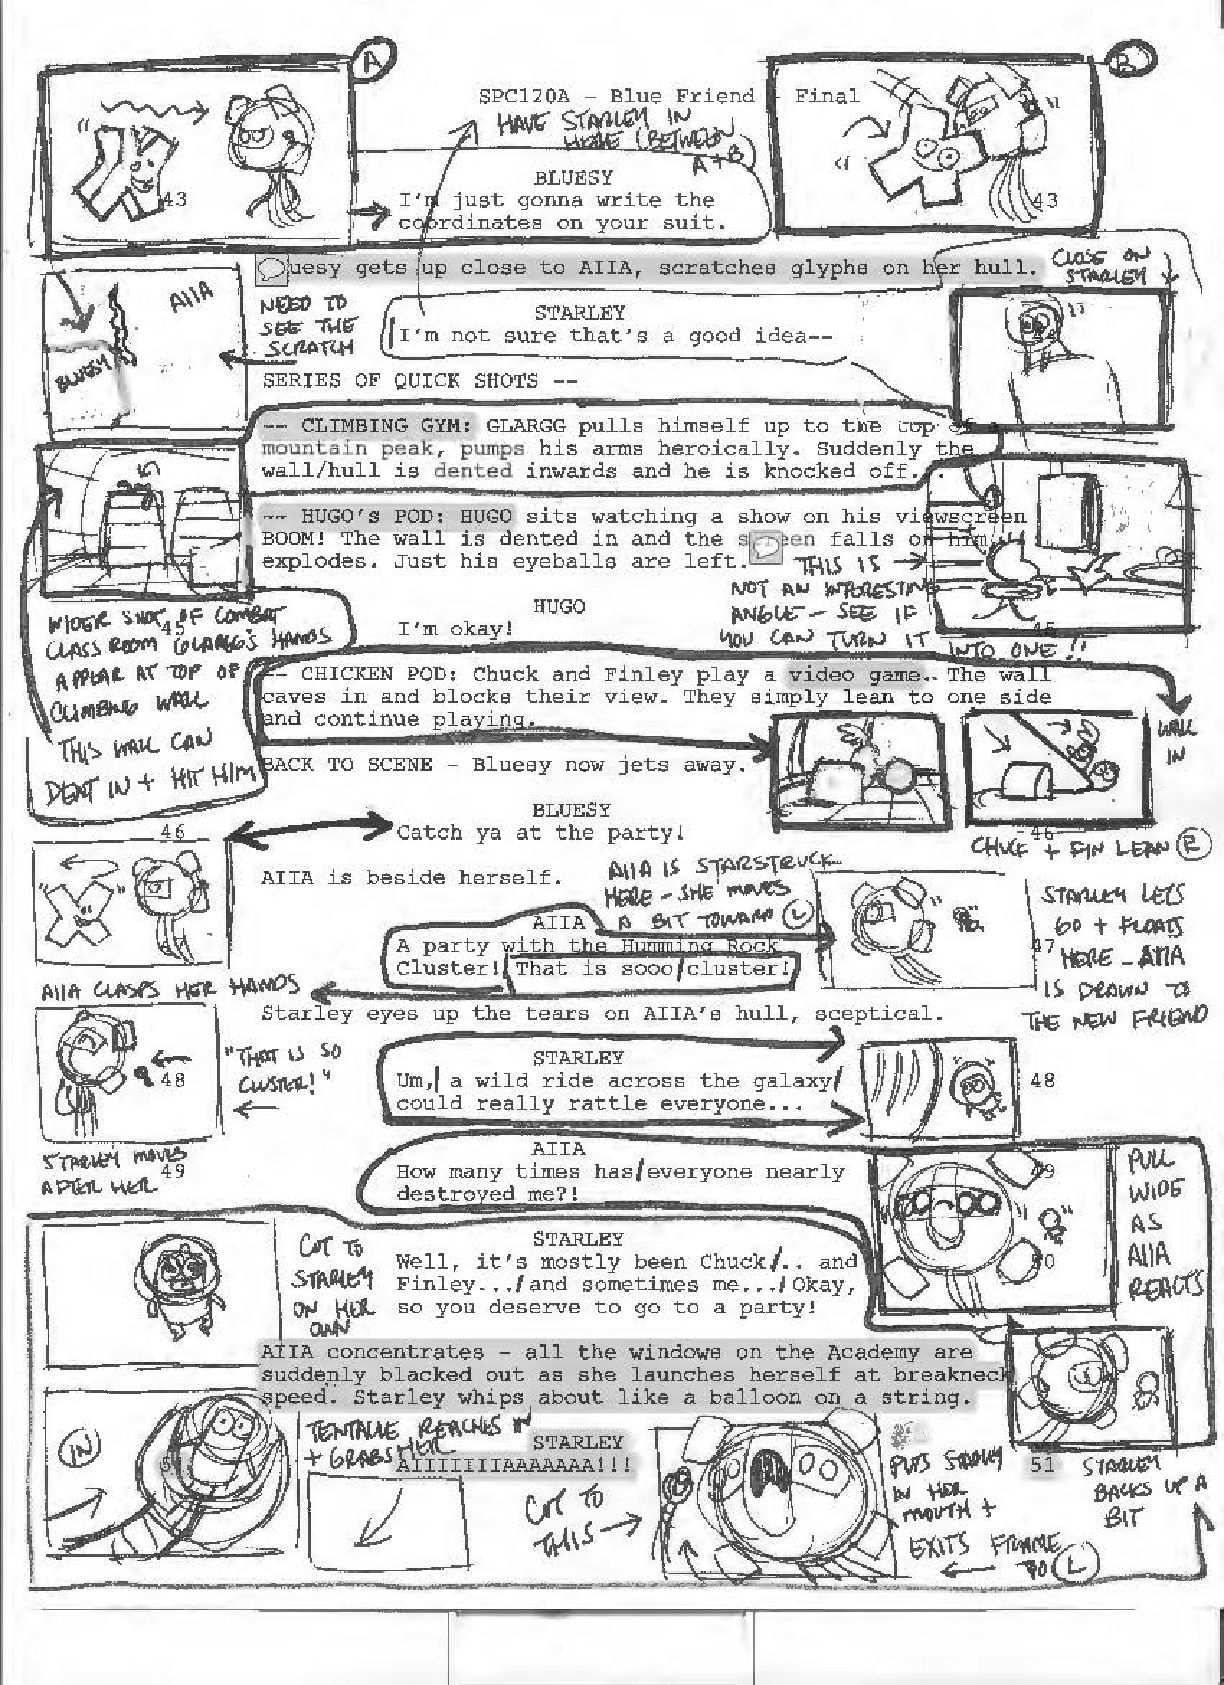 A
B
SPC120A – Blue Friend – Final
HAVE STARLEY IN
HERE (BETWEEN
A + B)
43
43
BLUESY
I'm just gonna write the
coordinates on your suit.
uesy gets up close to AIIA, scratches glyphs on her hull.
CLOSE ON
STARLEY
AIIA
BLUESY
NEED TO
SEE THE
SCRATCH
STARLEY
I'm not sure that's a good idea--
SERIES OF QUICK SHOTS --
-- CLIMBING GYM: GLARGG pulls himself up to the top of a
mountain peak, pumps his arms heroically. Suddenly the
wall/hull is dented inwards and he is knocked off.
-- HUGO'S POD: HUGO sits watching a show on his viewscreen
BOOM! The wall is dented in and the screen falls on him
explodes. Just his eyeballs are left.
THIS IS
NOT AN INTERESTING
ANGLE – SEE IF
YOU CAN TURN IT
INTO ONE!!
WIDER SHOT OF COMBAT
CLASS ROOM GLARGG'S HANDS
APPEAR AT TOP OF
CLIMBING WALL
THIS WALL CAN
DENT IN + HIT HIM
45
45
HUGO
I'm okay!
-- CHICKEN POD: Chuck and Finley play a video game. The wall
caves in and blocks their view. They simply lean to one side
and continue playing.
WALL
IN
BACK TO SCENE – Bluesy now jets away.
46
46
CHUCK + FIN LEAN R
BLUESY
Catch ya at the party!
AIIA is beside herself.
AIIA IS STARSTRUCK
HERE – SHE MOVES
A BIT TOWARD L
AIIA
A party with the Humming Rock
Cluster! That is sooo cluster!
47
STARLEY LETS
GO + FLOATS
HERE – AIIA
IS DRAWN TO
THE NEW FRIEND
AIIA CLASPS HER HANDS
Starley eyes up the tears on AIIA's hull, sceptical.
48
"THAT IS SO
CLUSTER!"
STARLEY
Um, a wild ride across the galaxy
could really rattle everyone...
48
STARLEY MOVES
AFTER HER
49
AIIA
How many times has everyone nearly
destroyed me?!
49
PULL
WIDE
AS
AIIA
REACTS
CUT TO
STARLEY
ON HER
OWN
STARLEY
Well, it's mostly been Chuck... and
Finley... and sometimes me... Okay,
so you deserve to go to a party!
50
AIIA concentrates – all the windows on the Academy are
suddenly blacked out as she launches herself at breakneck
speed. Starley whips about like a balloon on a string.
IN
TENTACLE REACHES IN
+ GRABS HER
STARLEY
AIIIIIIIAAAAAAA!!!
51
CUT TO
THIS
PUTS STARLEY
IN HER
MOUTH +
EXITS FRAME
TO L
STARLEY
BACKS UP A
BIT